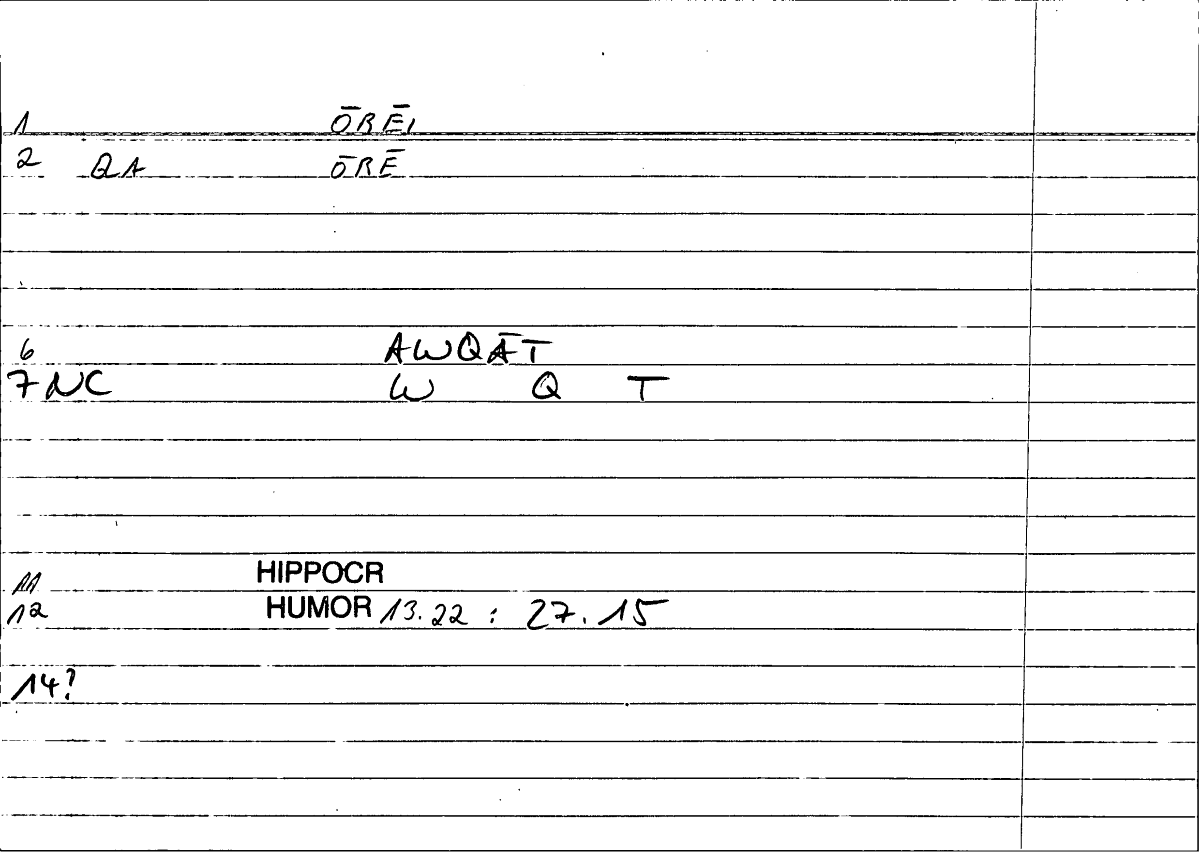 1 ŌRĒI
2 QA ŌRĒ
6 AWQĀT
7 NC W Q T
11 HIPPOCR
12 HUMOR 13.22 : 27.15
14?